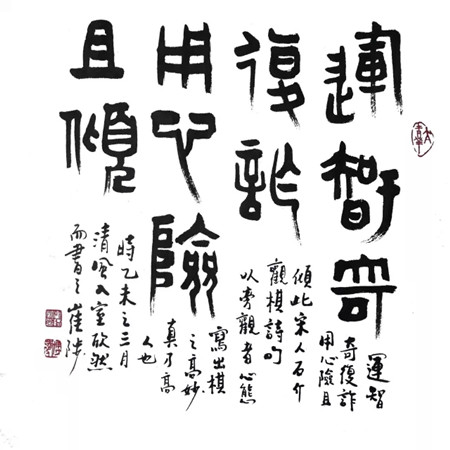 運智奇
復詐
用心險
且傾
運智
奇復詐
用心險且
傾此宋人石介
觀棋詩句
以旁觀者心態
寫出棋
之高妙
真乃高
人也
時乙未之三月
清風入室欣然
而書之崔陟